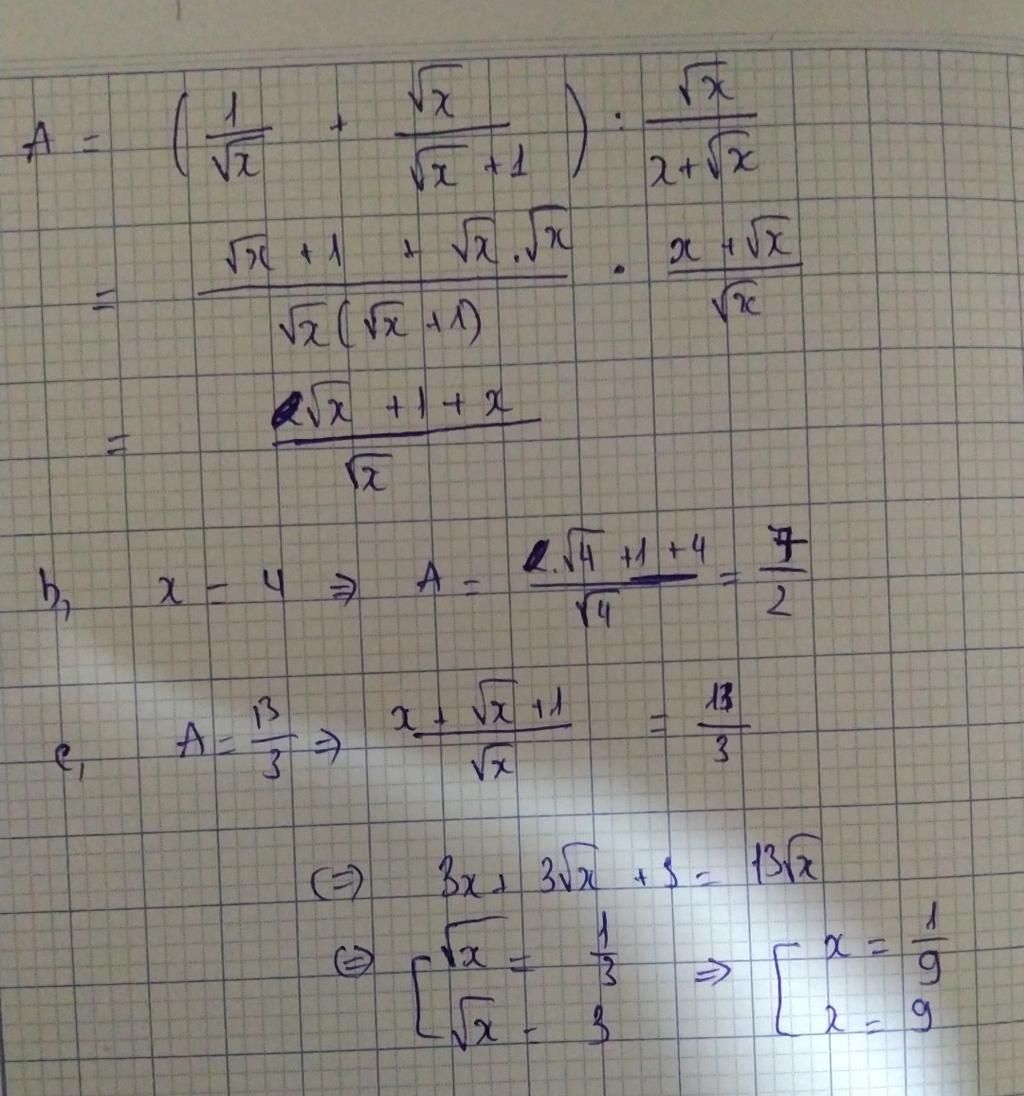 A = (1/√x + √x/(√x + 1)) : √x/(x + √x)
= (√x + 1 + √x . √x)/(√x(√x + 1)) . (x + √x)/√x
= (√x + 1 + x)/√x
b, x = 4 ⇒ A = (√4 + 1 + 4)/√4 = 7/2
c, A = 13/3 ⇒ (x + √x + 1)/√x = 13/3
(⇒) 3x + 3√x + 3 = 13√x
(⇒) [ √x = 1/3 ⇒ [ x = 1/9
√x = 3 x = 9